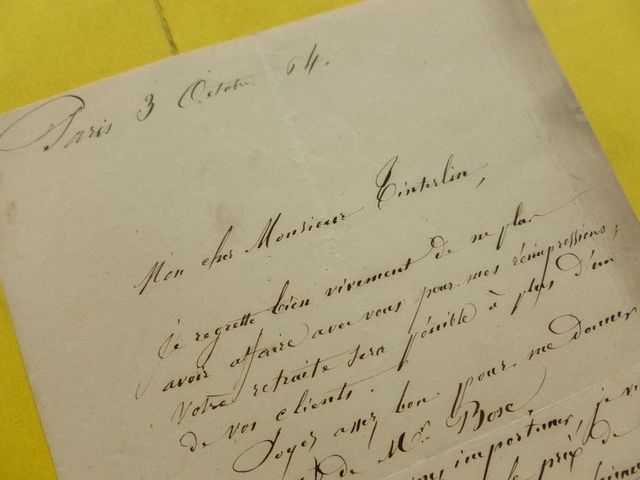 Paris 3 Octobre 64.
Mon cher Monsieur Tinterlin,
Je regrette bien vivement de ne plus
avoir affaire avec vous pour mes réimpressions;
Votre retraite sera pénible à plus d'un
de vos clients.
Soyez assez bon pour me donner
de Mr. Bosc.
importuner, je
le prix de